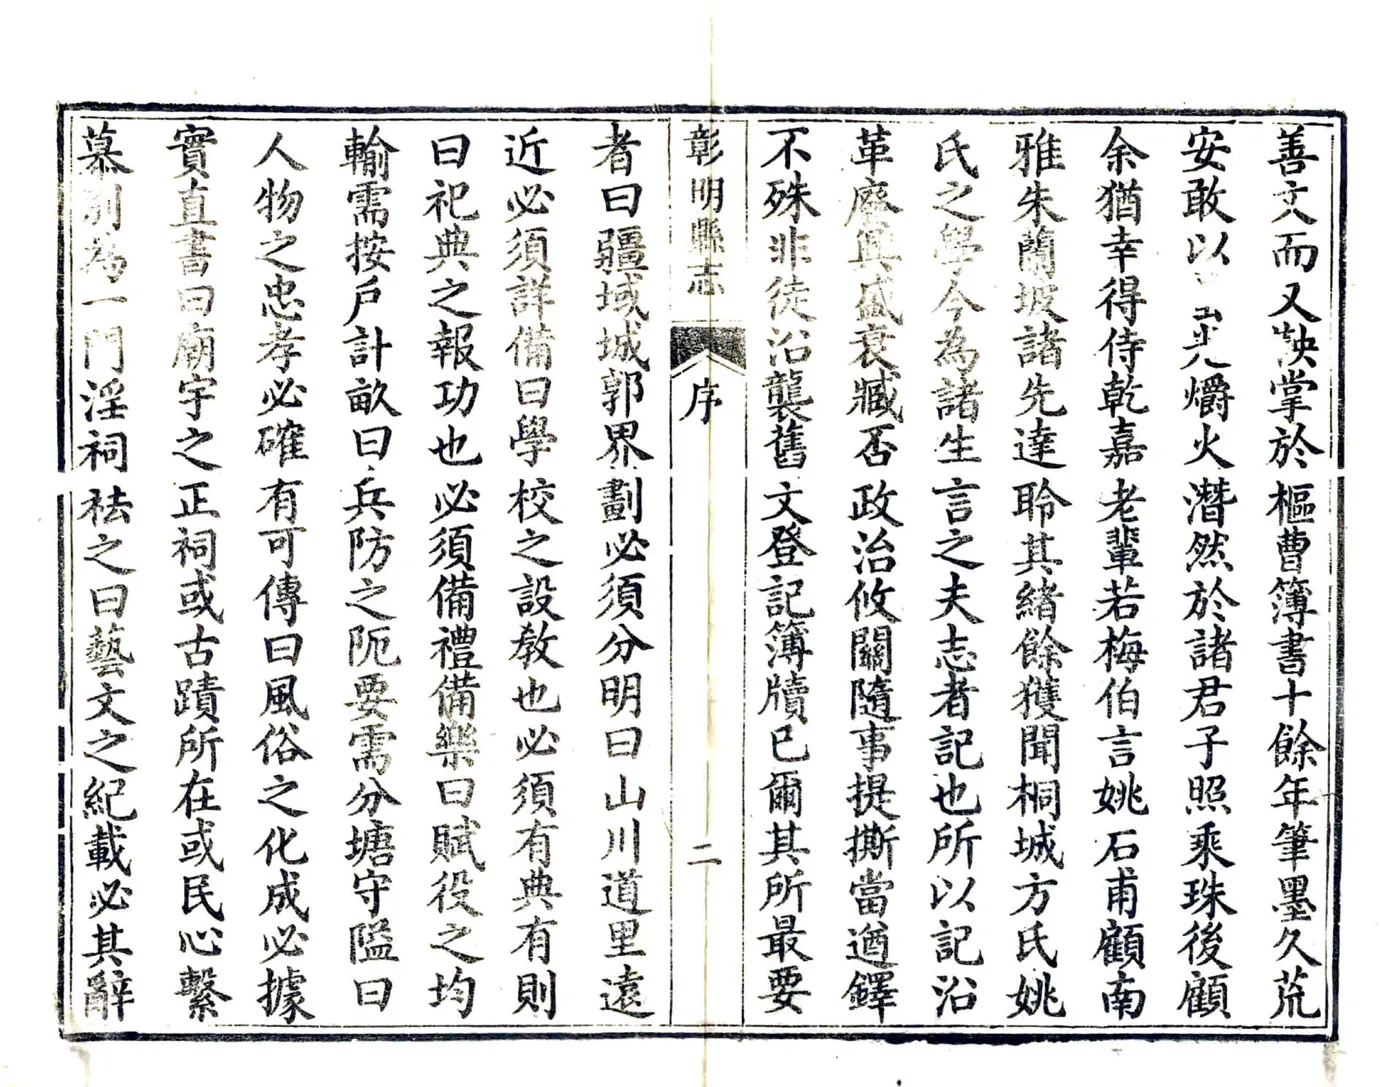 善文而又鞅掌於樞曹簿書十餘年筆墨久荒
安敢以光爝火潛然於諸君子照乘珠後顧
余猶幸得侍乾嘉老輩若梅伯言姚石甫顧南
雅朱蘭坡諸先達聆其緒餘獲聞桐城方氏姚
氏之學今為諸生言之夫志者記也所以記沿
革廢興盛衰臧否政治攸關隨事提撕當遒鐸
不殊非徒沿襲舊文登記簿牘已爾其所最要
彰明縣志
序
二
者曰疆域城郭界劃必須分明曰山川道里遠
近必須詳備曰學校之設教也必須有典有則
曰祀典之報功也必須備禮備樂曰賦役之均
輸需按戶計畝曰兵防之阨要需分塘守隘曰
人物之忠孝必確有可傳曰風俗之化成必據
實直書曰廟宇之正祠或古蹟所在或民心繫
慕別為一門淫祠袪之曰藝文之紀載必其辭